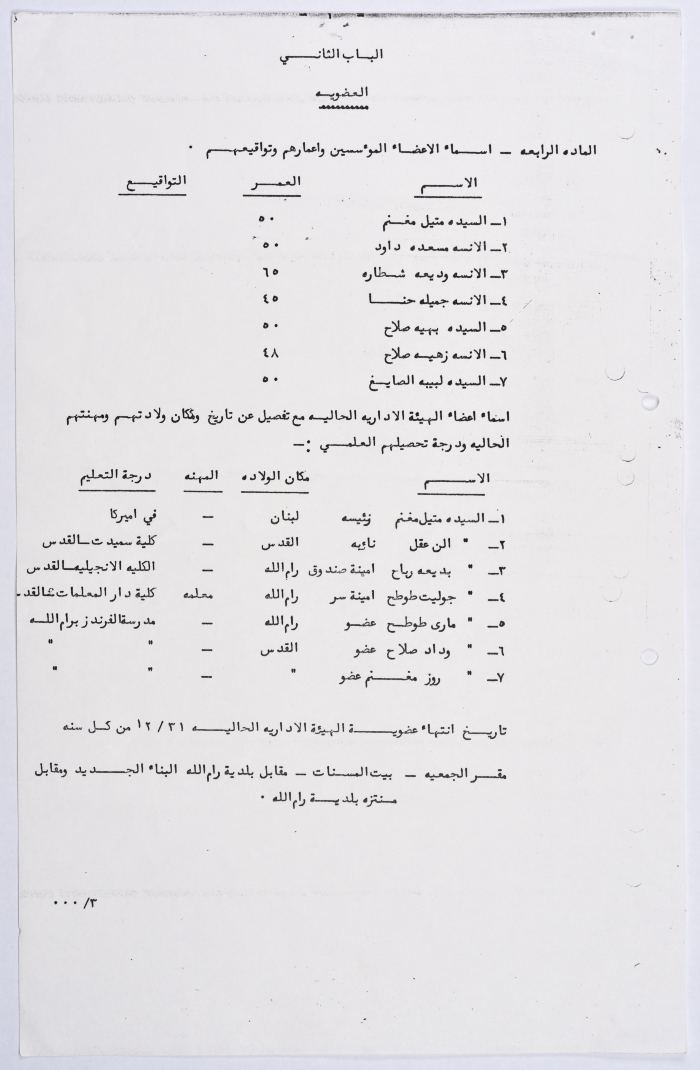 البـاب الثانـــي
العضويــه
الماده الرابعه – اسمـاء الاعضـاء المؤسسين واعمارهم وتواقيعهـم ٠
الاســم العمـر التواقيـع
١– السيده متيل مغنم ٥٠
٢– الانسه مسعده داود ٥٠
٣– الانسه وديعه شطاره ٦٥
٤– الانسه جميله حنــا ٤٥
٥– السيده بهيه صلاح ٥٠
٦– الانسه زهيـه صلاح ٤٨
٧– السيده لبيبه الصايـغ ٥٠
اسماء اعضاء الهيئة الاداريه الحاليـه مع تفصيل عن تاريخ ومكان ولادتهـم ومهنتهم
الحاليه ودرجة تحصيلهم العلمـي :–
الاســم مكان الولاده المهنه درجة التعليم
١– السيده متيل مغنم رئيسه لبنان – في اميركا
٢– " الن عقل نائبه القدس – كلية سميدت–القدس
٣– " بديعه رباح امينة صندوق رام الله – الكليه الانجيليه–القدس
٤– " جوليت طوطح امينة سر رام الله معلمه كلية دار المعلمات–القدس
٥– " مارى طوطـح عضـو رام الله – مدرسة الفرندز برام اللـه
٦– " وداد صلاح عضو القدس – " "
٧– " روز مغــنم عضو " – " "
تاريـخ انتهاء عضويــة الهيئة الاداريه الحاليــه ٣١/ ١٢ من كـل سنه
مقـر الجمعيه – بيت المسنـات – مقابل بلدية رام الله البناء الجـديد ومقابل
منتزه بلديــة رام الله ٠
٣/ ٠٠٠